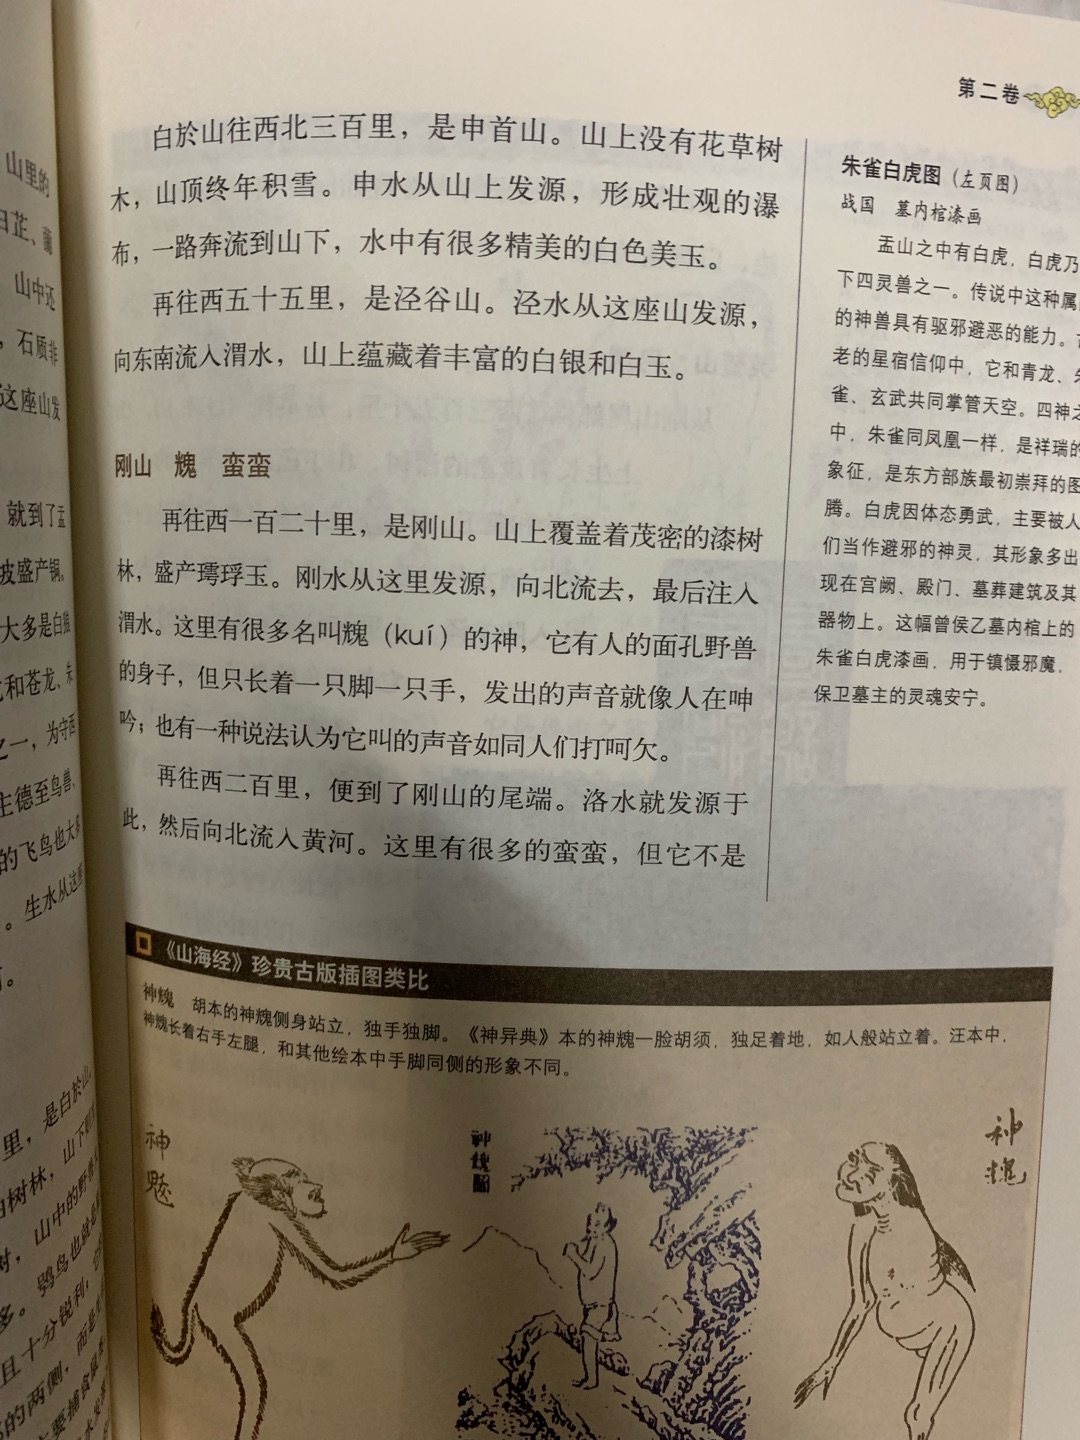 第二卷
山里的
白芷、蘼
山中还
，石质非
这座山发
就到了孟
坡盛产铜。
大多是白狼
和苍龙、朱
之一，为守西
主德至鸟兽、
的飞鸟也大多
。生水从这座
里，是白於山。
树林，山下则
树，山中的野兽
多。鸮鸟也就是
且十分锐利；
的两侧，而是
白於山往西北三百里，是申首山。山上没有花草树
木，山顶终年积雪。申水从山上发源，形成壮观的瀑
布，一路奔流到山下，水中有很多精美的白色美玉。
再往西五十五里，是泾谷山。泾水从这座山发源，
向东南流入渭水，山上蕴藏着丰富的白银和白玉。
刚山 魄 蛮蛮
再往西一百二十里，是刚山。山上覆盖着茂密的漆树
林，盛产㻬琈玉。刚水从这里发源，向北流去，最后注入
渭水。这里有很多名叫（kuí）的神，它有人的面孔野兽
的身子，但只长着一只脚一只手，发出的声音就像人在呻
吟；也有一种说法认为它叫的声音如同人们打呵欠。
再往西二百里，便到了刚山的尾端。洛水就发源于
此，然后向北流入黄河。这里有很多的蛮蛮，但它不是
朱雀白虎图（左页图）
战国 墓内棺漆画
孟山之中有白虎，白虎乃
下四灵兽之一。传说中这种属
的神兽具有驱邪避恶的能力。
老的星宿信仰中，它和青龙、朱
雀、玄武共同掌管天空。四神之
中，朱雀同凤凰一样，是祥瑞的
象征，是东方部族最初崇拜的图
腾。白虎因体态勇武，主要被人
们当作避邪的神灵，其形象多出
现在宫阙、殿门、墓葬建筑及其
器物上。这幅曾侯乙墓内棺上的
朱雀白虎漆画，用于镇慑邪魔，
保卫墓主的灵魂安宁。
《山海经》珍贵古版插图类比
神 胡本的神侧身站立，独手独脚。《神异典》本的神一脸胡须，独足着地，如人般站立着。汪本中，
神长着右手左腿，和其他绘本中手脚同侧的形象不同。
神
神
神